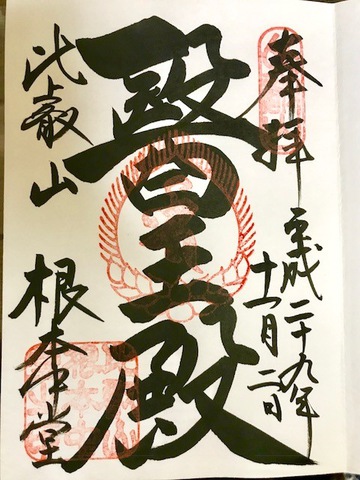 奉拝
平成二十九年
十一月二日
醫王殿
比叡山
根本中堂